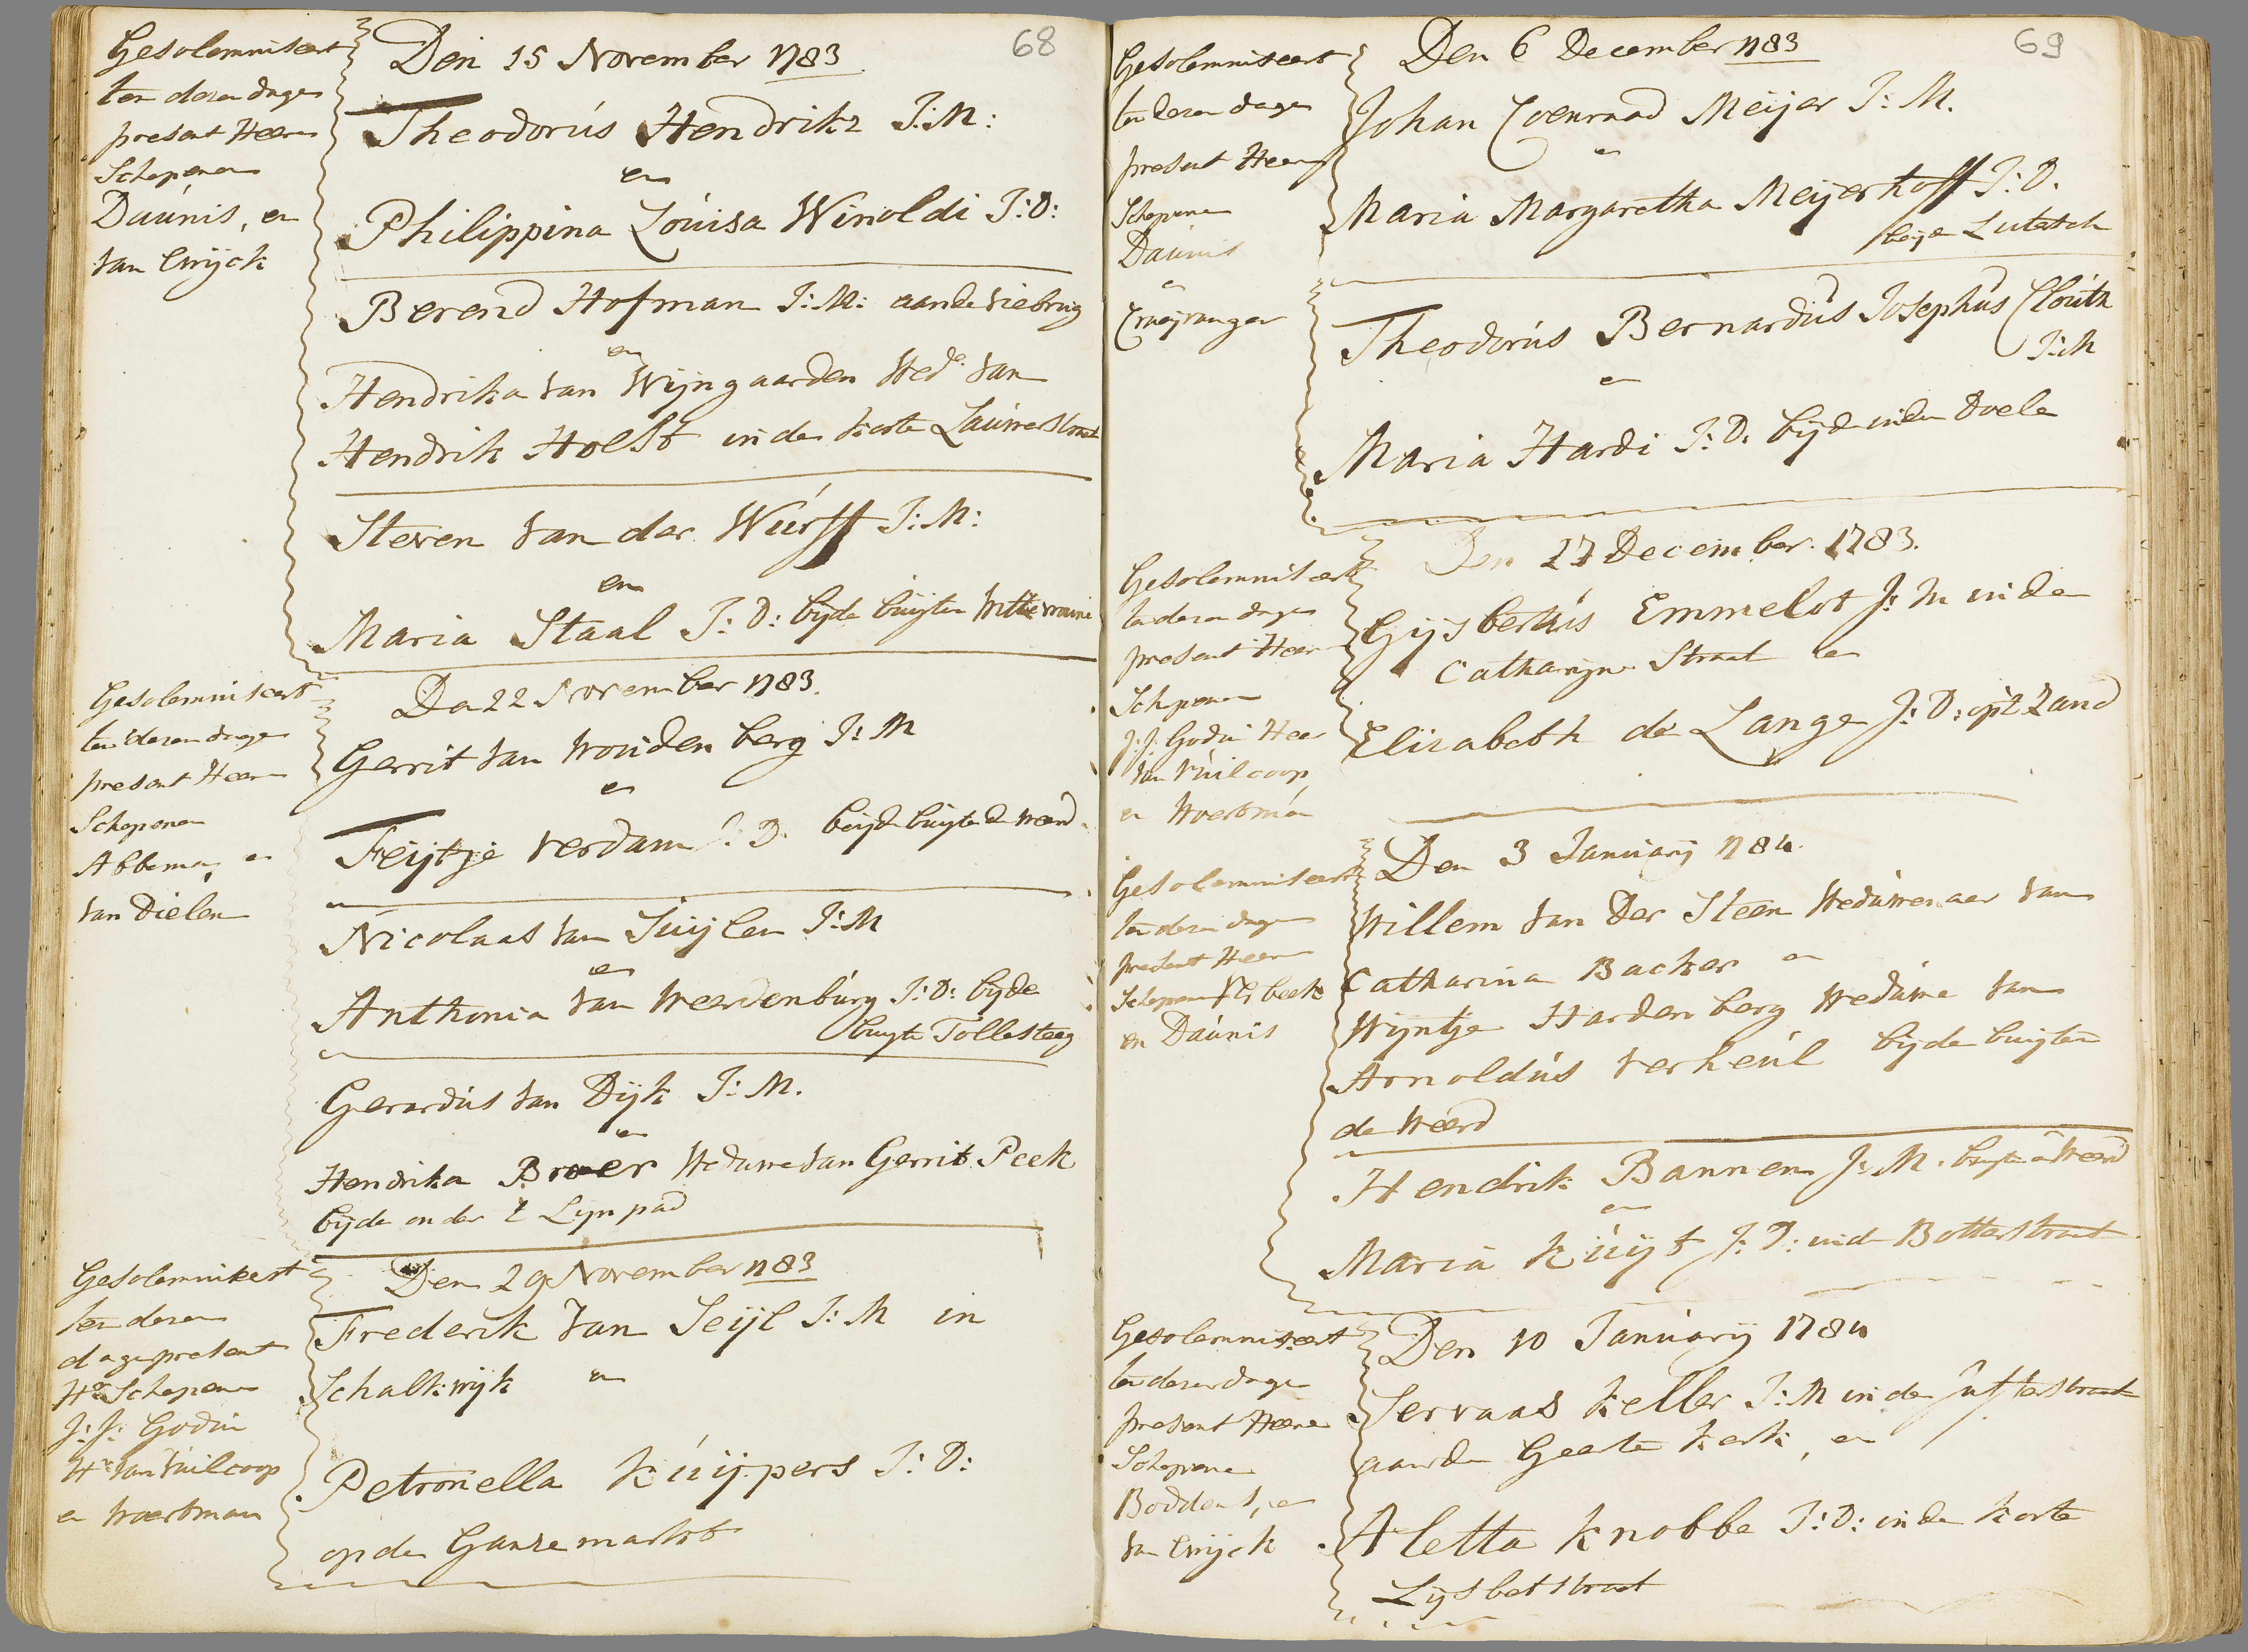 68
Gesolemniseert
ten deren dage
present Heeren
Schepenen
Daúnis, en
van Cnijck
Den 15 November 1783
Theodorús Hendriks J:M:
en
Philippina Loúisa Winoldi J:D:
Berend Hofman J:M: aande Viebrug
en
Hendrika van Wijngaarden Wed.e van
Hendrik Holst in de korte Laúwerstraat
Steven van der Wúrff J:M:
en
Maria Staal J:D: bijde buijten
Gesolemniseert
ten deren dage
present Heeren
Schepenen
Abbema, en
van Dielen
Den 22 November 1783.
Gerrit van Woúdenberg J:M
en
Feijtje Verdam J:D. beijde buijte de Weerd
Nicolaas van Súijlen J:M
en
Anthonia van Weerdenbúrg J:D: bijde
buijte Tollesteeg
Gerardús van Dijk J:M.
en
Hendrika Broer Wedúwe van Gerrit Peek
bijde onder t Lijnpad
Gesolemniseert
ten deren
dage present
Hn Schepenen
J:J: Godin
Hr van Vúilcoop
en Woertman
Den 29 November 1783
Frederik van Seijl J:M in
Schalkwijk en
Petronella Kúijpers J:D:
op de Ganzemarkt
69
Gesolemniseert
ten deren dage
present Heeren
Schepenen
Daúnis
en
Craeijvanger
Den 6 December 1783
Johan Coenraad Meijer J:M.
en
Maria Margaretha Meijerhoff J:D.
beijde Lútersch
Theodorús Bernardús Josephús Cloúth
J:M
en
Maria Hardi J:D. bijde inde Doele
Gesolemniseert
ten deren dage
present Heeren
Schepenen
J:J: Godin Heer
van Vúilcoop,
en Woertman
Den 27 December 1783.
Gijsbertús Emmelot J:M in de
Catharijne Straat en
Elizabeth de Lange J:D: opt Zand
Gesolemniseert
ten deren dage
present Heeren
Schepenen
en Daúnis
Den 3 Janúarij 1784.
Willem van Der Steen Wedúwenaar van
Catharina Backer en
Wijntje Hardenberg Wedúwe van
Arnoldús Verheúl bijde buijten
de Weerd
Hendrik Bannen J:M. buijte d Weerd
en
Maria Kúijt J:D: in de Botterstraat
Gesolemniseert
ten deren dage
present Heeren
Schepenen
Boddens, en
van Cnijck
Den 10 Janúarij 1784
Servaas Keller J:M in de Júfferstraat
aan de Geerte Kerk, en
Aletta Knobbe J:D: in de korte
Lijsbetstraat